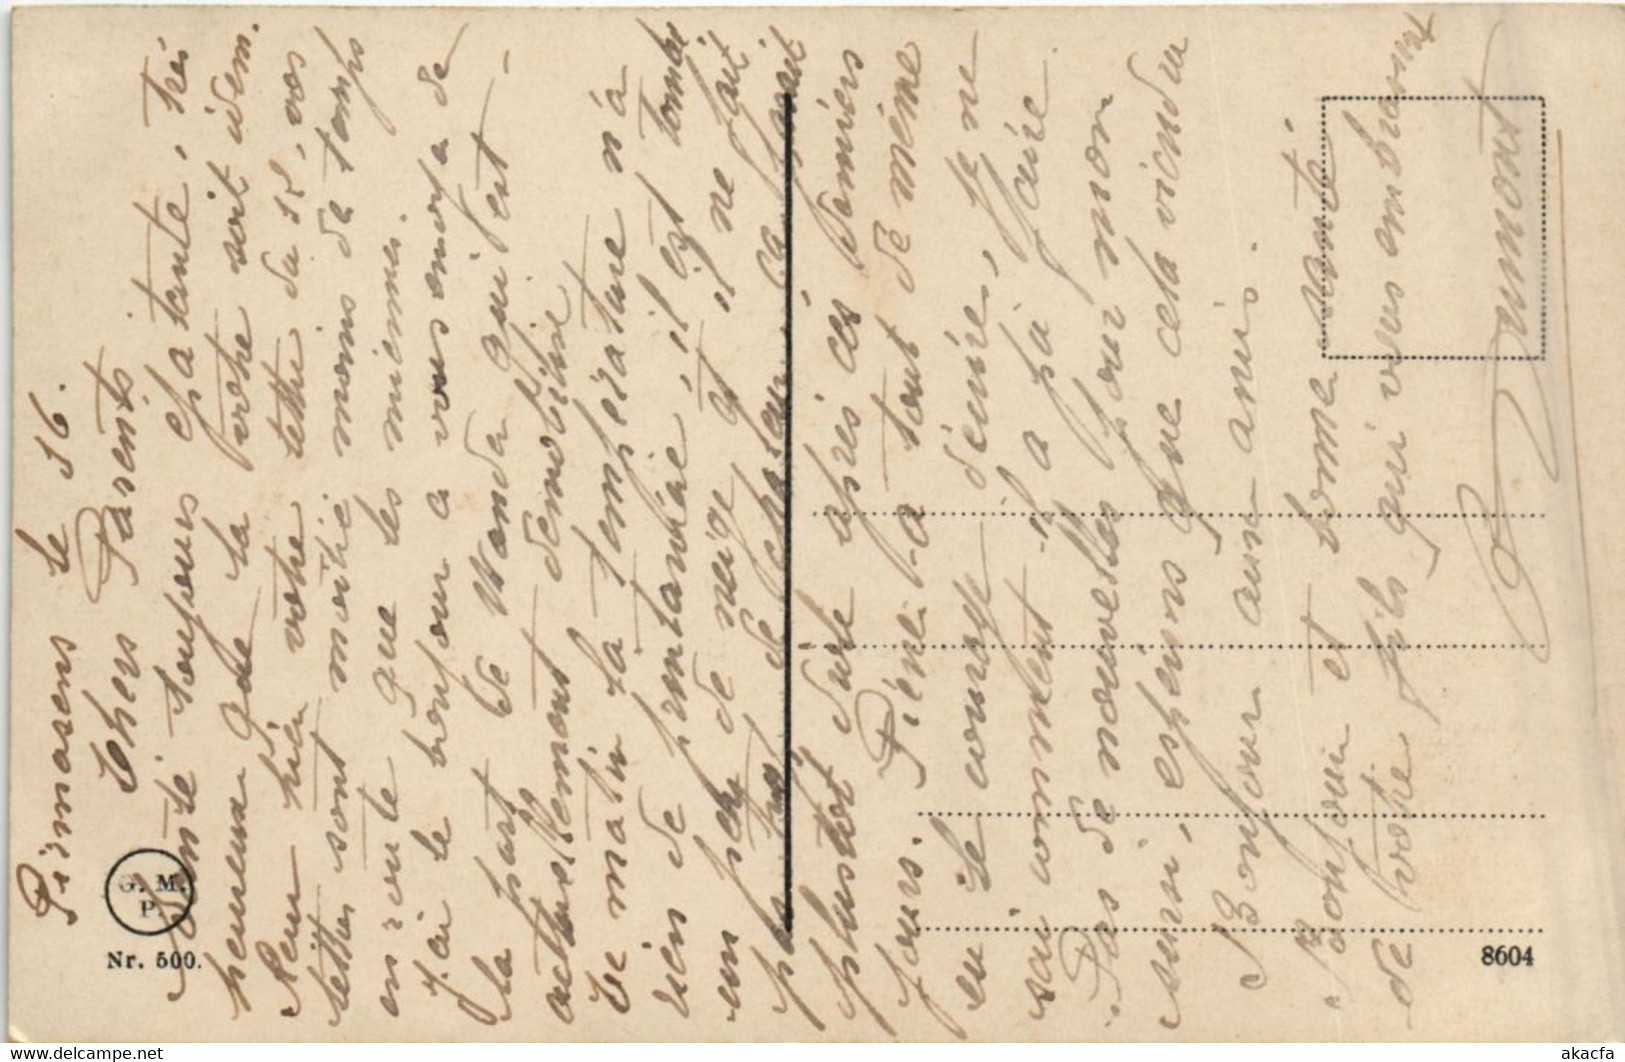 Pirmasens le 16.
Chers Parents
Santé toujours épatante, très
heureux que la votre soit idem.
Reçu hier votre lettre du 12, vos
lettres sont moitié moins de temps
en route que les miennes.
J'ai le bonjour a vous envoyer de
la part de Wanda qui est
actuellement démobilisé
Ce matin la température n'a
rien de printanière, il est tombé
un peu de neige et il ne fait
pas trop de chaleur, ça parait
plustôt dure après ces derniers
jours. Pierre a tout de même
eu le courage d'écrire, je ne
sai comment il a pu faire
Pas de nouvelles pour mon
sursi, espérons que cela viendra
Bonjour aux amis.
Bonjour et bonne santé
de votre fils qui vous embrasse
Dumont
G. M.
P.
Nr. 500.
8604
akacfa